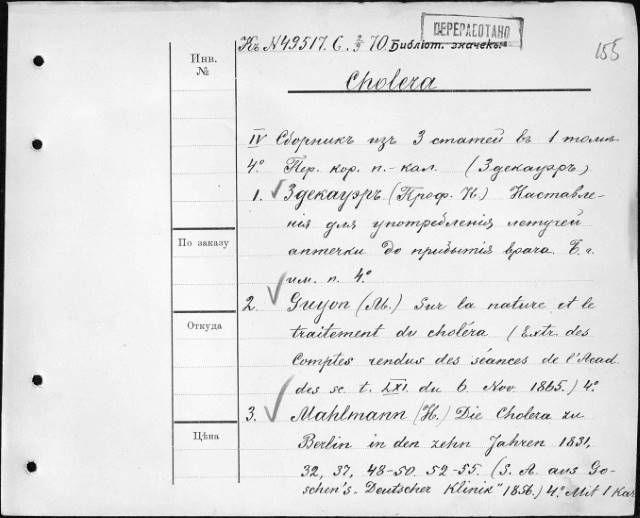 ПЕРЕРАБОТАНО
155
Къ N 49517. С. 2/9 70. Библіот. значекъ:
Инв.
№
Cholera
IV Сборникъ изъ 3 статей въ 1 томѣ
4º Пер. кор. п.-кал. (Здекауэръ)
1. Здекауэръ (Проф. Н.) Наставле-
нія для употребленія летучей
аптечки до прибытія врача. Б. г.
По заказу
им. п. 4º
2. Guyon (M.) Sur la nature et le
Откуда
traitement du choléra (Extr. des
Comptes rendus des séances de l'Acad.
des sc. t. LXI. du 6 Nov. 1865.) 4º
3. Mahlmann (H.) Die Cholera zu
Цѣна
Berlin in den zehn Jahren 1831,
32, 37, 48-50. 52-55. (S. A. aus Go-
schen's "Deutscher Klinik" 1856.) 4º Mit 1 Kar